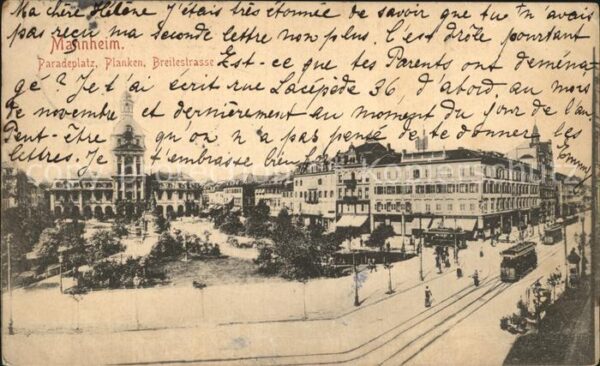 Ma chère Hélène J'étais très étonnée de savoir que tu n'avais
pas reçu ma seconde lettre non plus. C'est drôle pourtant
Mannheim.
Paradeplatz, Planken, Breitestrasse
Est-ce que tes Parents ont déména-
gé? Je t'ai écrit rue Lacépède 36, d'abord, au mois
de novembre et dernièrement au moment du jour de l'an
Peut-être qu'on n'a pas pensé de te donner les
lettres. Je t'embrasse bien fort